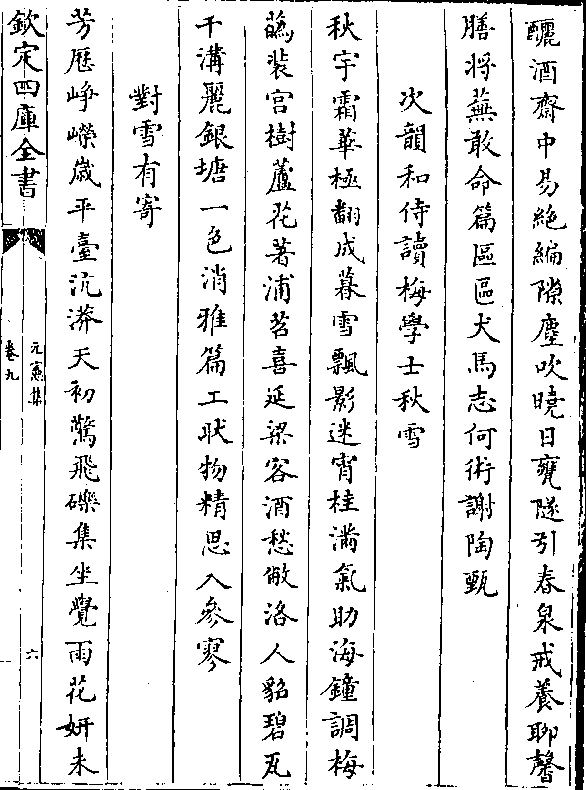 釃酒齋中易絶編隙塵吹曉日甕隧引春泉戒養聊馨
膳將蕪敢命篇區區犬馬志何術謝陶甄
次韻和侍讀梅學士秋雪
秋宇霜華極翻成暮雪飄影迷宵桂滿氣助海鐘調梅
蘤裝宫樹蘆花著浦苕喜延梁客酒愁敝洛人貂碧瓦
千溝麗銀塘一色消雅篇工狀物精思入參寥
對雪有寄
芳厯崢嶸歲平臺沆漭天初驚飛礫集坐覺雨花妍未
欽定四庫全書
元憲集
卷九
六